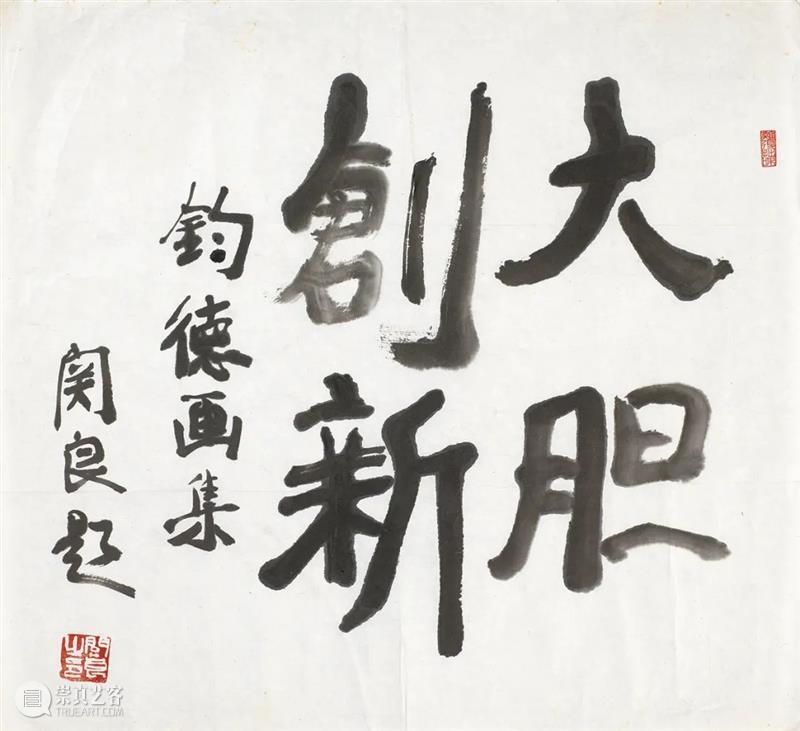 大胆
創新
鈞德画集
関良题
関良之印
崇真艺客
TRUEART.COM